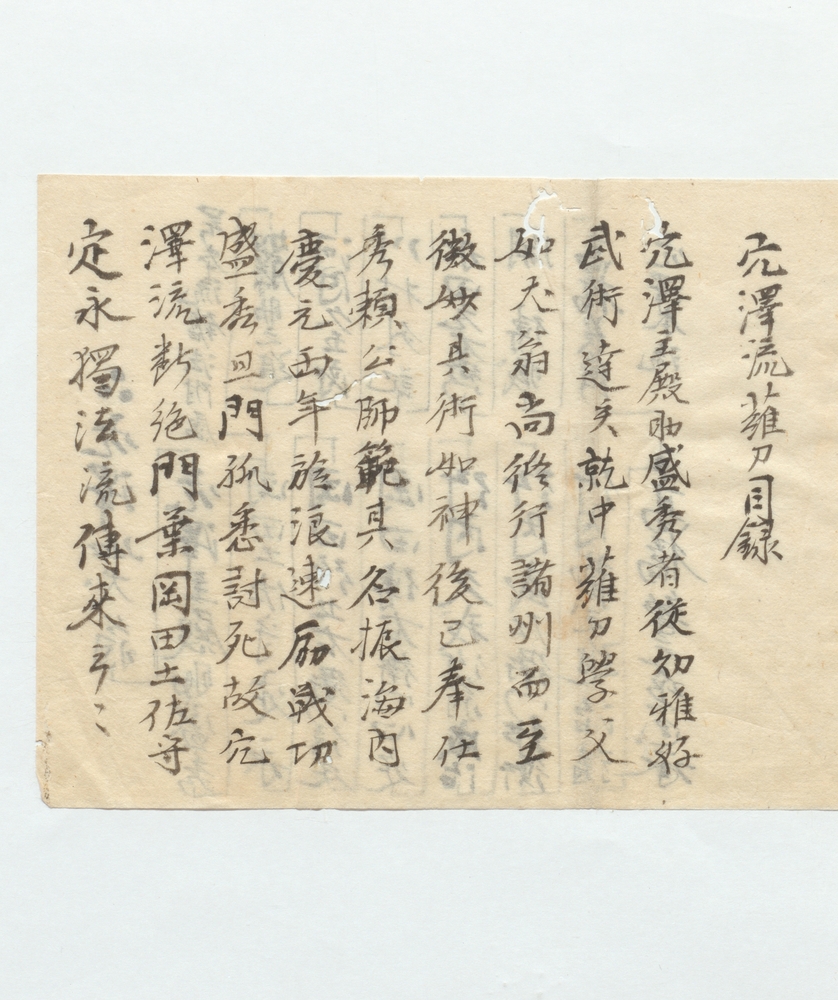 穴澤流薙刀目録
穴澤主殿助盛秀者從幼雅好
武術達矣就中薙刀學父
如犬翁尚修行諸州而至
微妙其術如神後已奉仕
秀頼公師範其名振海内
慶元両年於浪速励戦切
盛秀且門孤悉討死故穴
澤流断絶門葉岡田土佐守
定永獨法流傳來云々